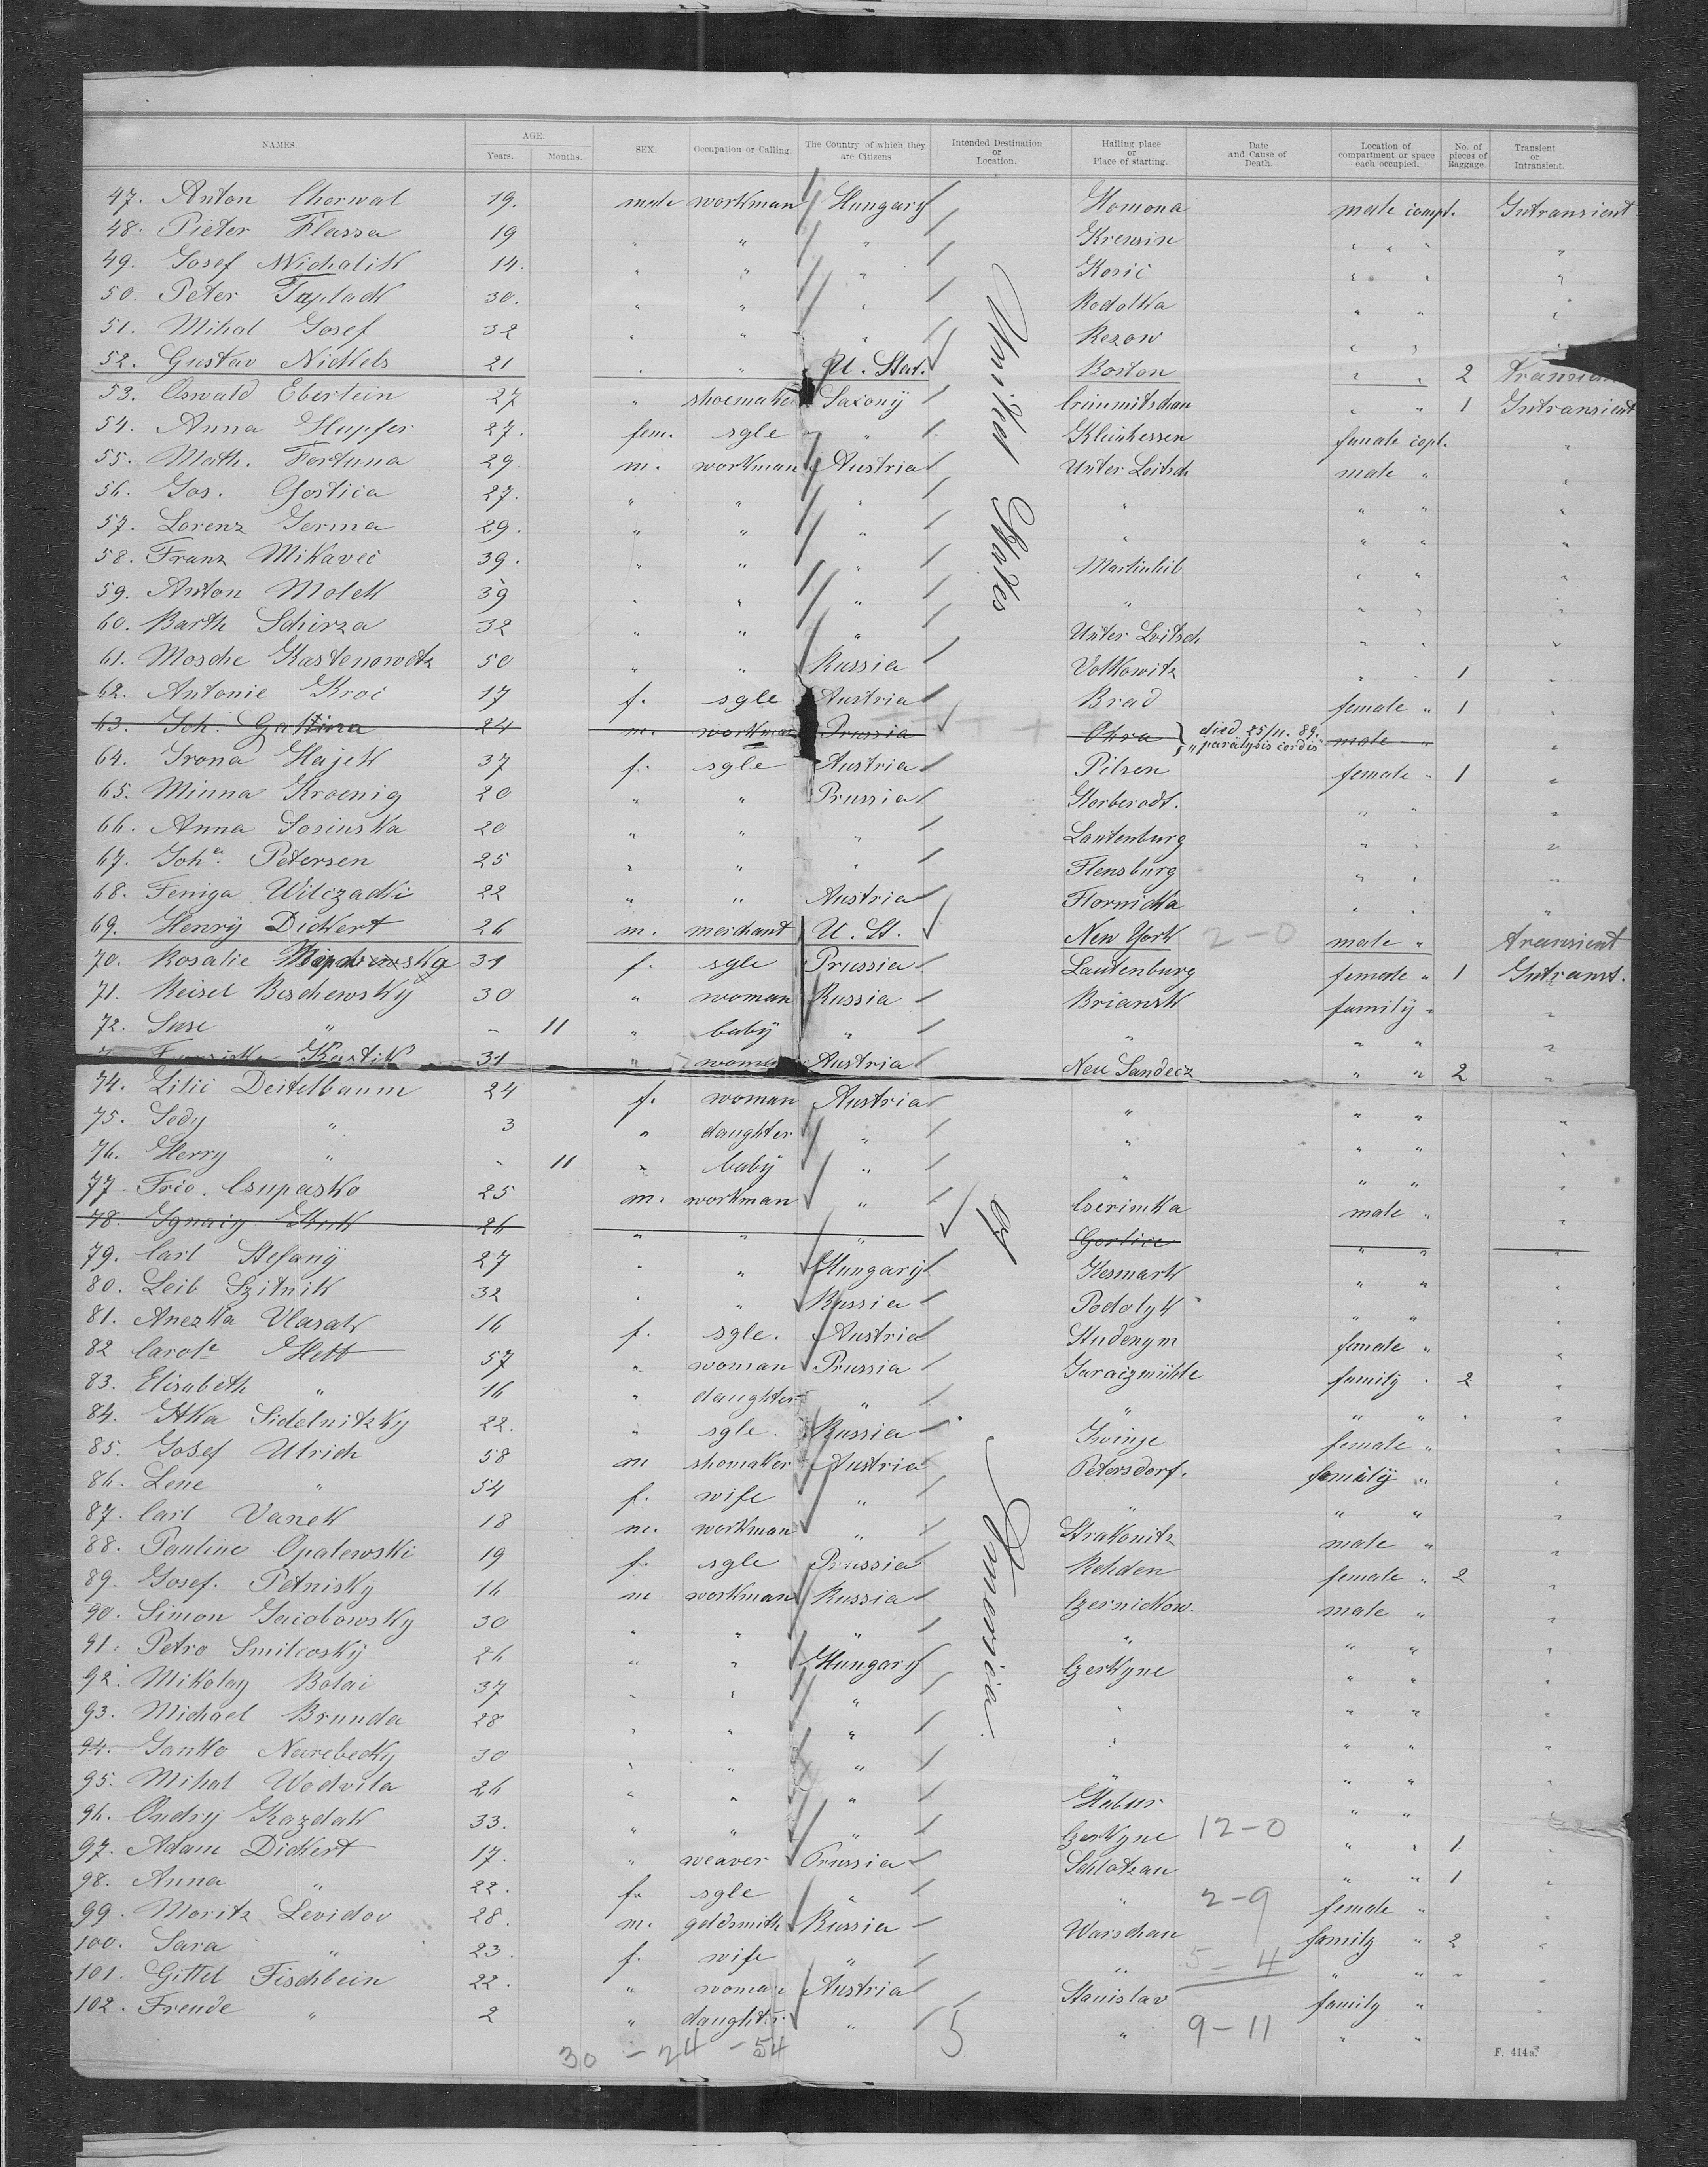 NAMES. AGE. Years. Months. SEX. Occupation or Calling. The Country of which they are Citizens Intended Destination or Location. Hailing place or Place of starting. Date and Cause of Death. Location of compartment or space each occupied. No. of pieces of Baggage. Transient or Intransient.
47. Anton Chorwal 19. male workman Hungary Homona male compt. Intransient
48. Pieter Flassa 19 " " " Kremsin " " " "
49. Josef Michalik 14. " " " Kosic " " " "
50. Peter 30. " " " Rodolka " " "
51. Mihal Josef 32 " " " Rezow " " "
52. Gustav Nickels 21 " " U. Stat. Boston " " 2 transient
53. Oswald Eberlein 27 " shoemaker Saxony Crimmitschau " " 1 Intransient
54. Anna Hupfer 27. fem. sgle " Kleinhessen female copt. "
55. Math. Fortuna 29. m. workman Austria Unter Loitsch male " "
56. Jos. Gostica 27. " " " " " " "
57. Lorenz Jerma 29. " " " " " " "
58. Franz Mikavec 39. " " " Martinhib " " "
59. Anton Molek 39 " " " " " " "
60. Barth Schirza 32 " " " Unter Loitsch " " "
61. Mosche Kastenowitz 50 " " Russia Volkowitz " " 1 "
62. Antonie Kroc 17 f. sgle Austria Brad female " 1 "
63. Joh. Gattina 24 m. workman Prussia Ohra died 25/11. 89. " paralysis cordis male " "
64. Irona Hajek 37 f. sgle Austria Pilsen female " 1 "
65. Minna Kroenig 20 " " Prussia Horberodt. " " "
66. Anna Sosinska 20 " " " Lautenburg " " "
67. Joha. Petersen 25 " " " Flensburg " " "
68. Feniga Wilczacki 22 " " Austria Flornicka " " "
69. Henry Dickert 26 m. merchant U. St. New York 2-0 male " transient
70. Rosalie 31 f. sgle Prussia Lautenburg female " 1 Intranst.
71. Reisel Beschewsky 30 " woman Russia Briansk family " "
72. Suse " - 11 " baby " " " " "
Kostik 31 " woman Austria Neu Sandecz " " 2 "
74. Lilie Deitelbaum 24 f. woman Austria " " " "
75. Sedy " 3 " daughter " " " " "
76. Herry " - 11 " baby " " " " "
77. Frio. Csupasko 25 m. workman " Cserimka male " "
78. Ignacy Huk 26 " " " Gorlice " " "
79. Carl Stefany 27 " " Hungary Kesmark " " "
80. Leib Szitnik 32 " " Russia Podolyk " " "
81. Anezka Vlasak 16 f. sgle. Austria Studenym female " "
82 Carole Hett 57 " woman Prussia Garaizmühle family " 2 "
83. Elisabeth " 16 " daughter " " " " "
84. Itka Sidelnitzky 22. " sgle. Russia Iwinje female " "
85. Josef Ulrich 58 m shomaker Austria Petersdorf. family " "
86. Lene " 54 f. wife " " " " "
87. Carl Vanek 18 m. workman " Strakonitz male " "
88. Pauline Opalewski 19 f. sgle Prussia Rehden female " 2 "
89. Josef. Petnisky 16 m workman Russia Czernickow. male " "
90. Simon Jacobowsky 30 " " " " " " "
91. Petro Smilcosky 26 " " Hungary Czerkyne " " "
92. Mikolay Bolai 37 " " " " " " "
93. Michael Brunda 28 " " " " " " "
94. Janko Narebecky 30 " " " " " " "
95. Mihal Wodvila 26 " " " Habur " " "
96. Ondry Kazdak 33. " " " Czerkyne 12-0 " " 1. "
97. Adam Dickert 17. " weaver Prussia Schlotzau " " 1 "
98. Anna " 22. f. sgle " " 2-9 female " "
99. Moritz Levidov 28. m. goldsmith Russia Warschau family " 2 "
100. Sara " 23. f. wife " " 5-4 " " " "
101. Gittel Fischbein 22. " woman Austria Stanislav family " "
102. Freude " 2 " daughter " " 9-11 " "
30 - 24 - 54 5
F. 414a.
United States of America.